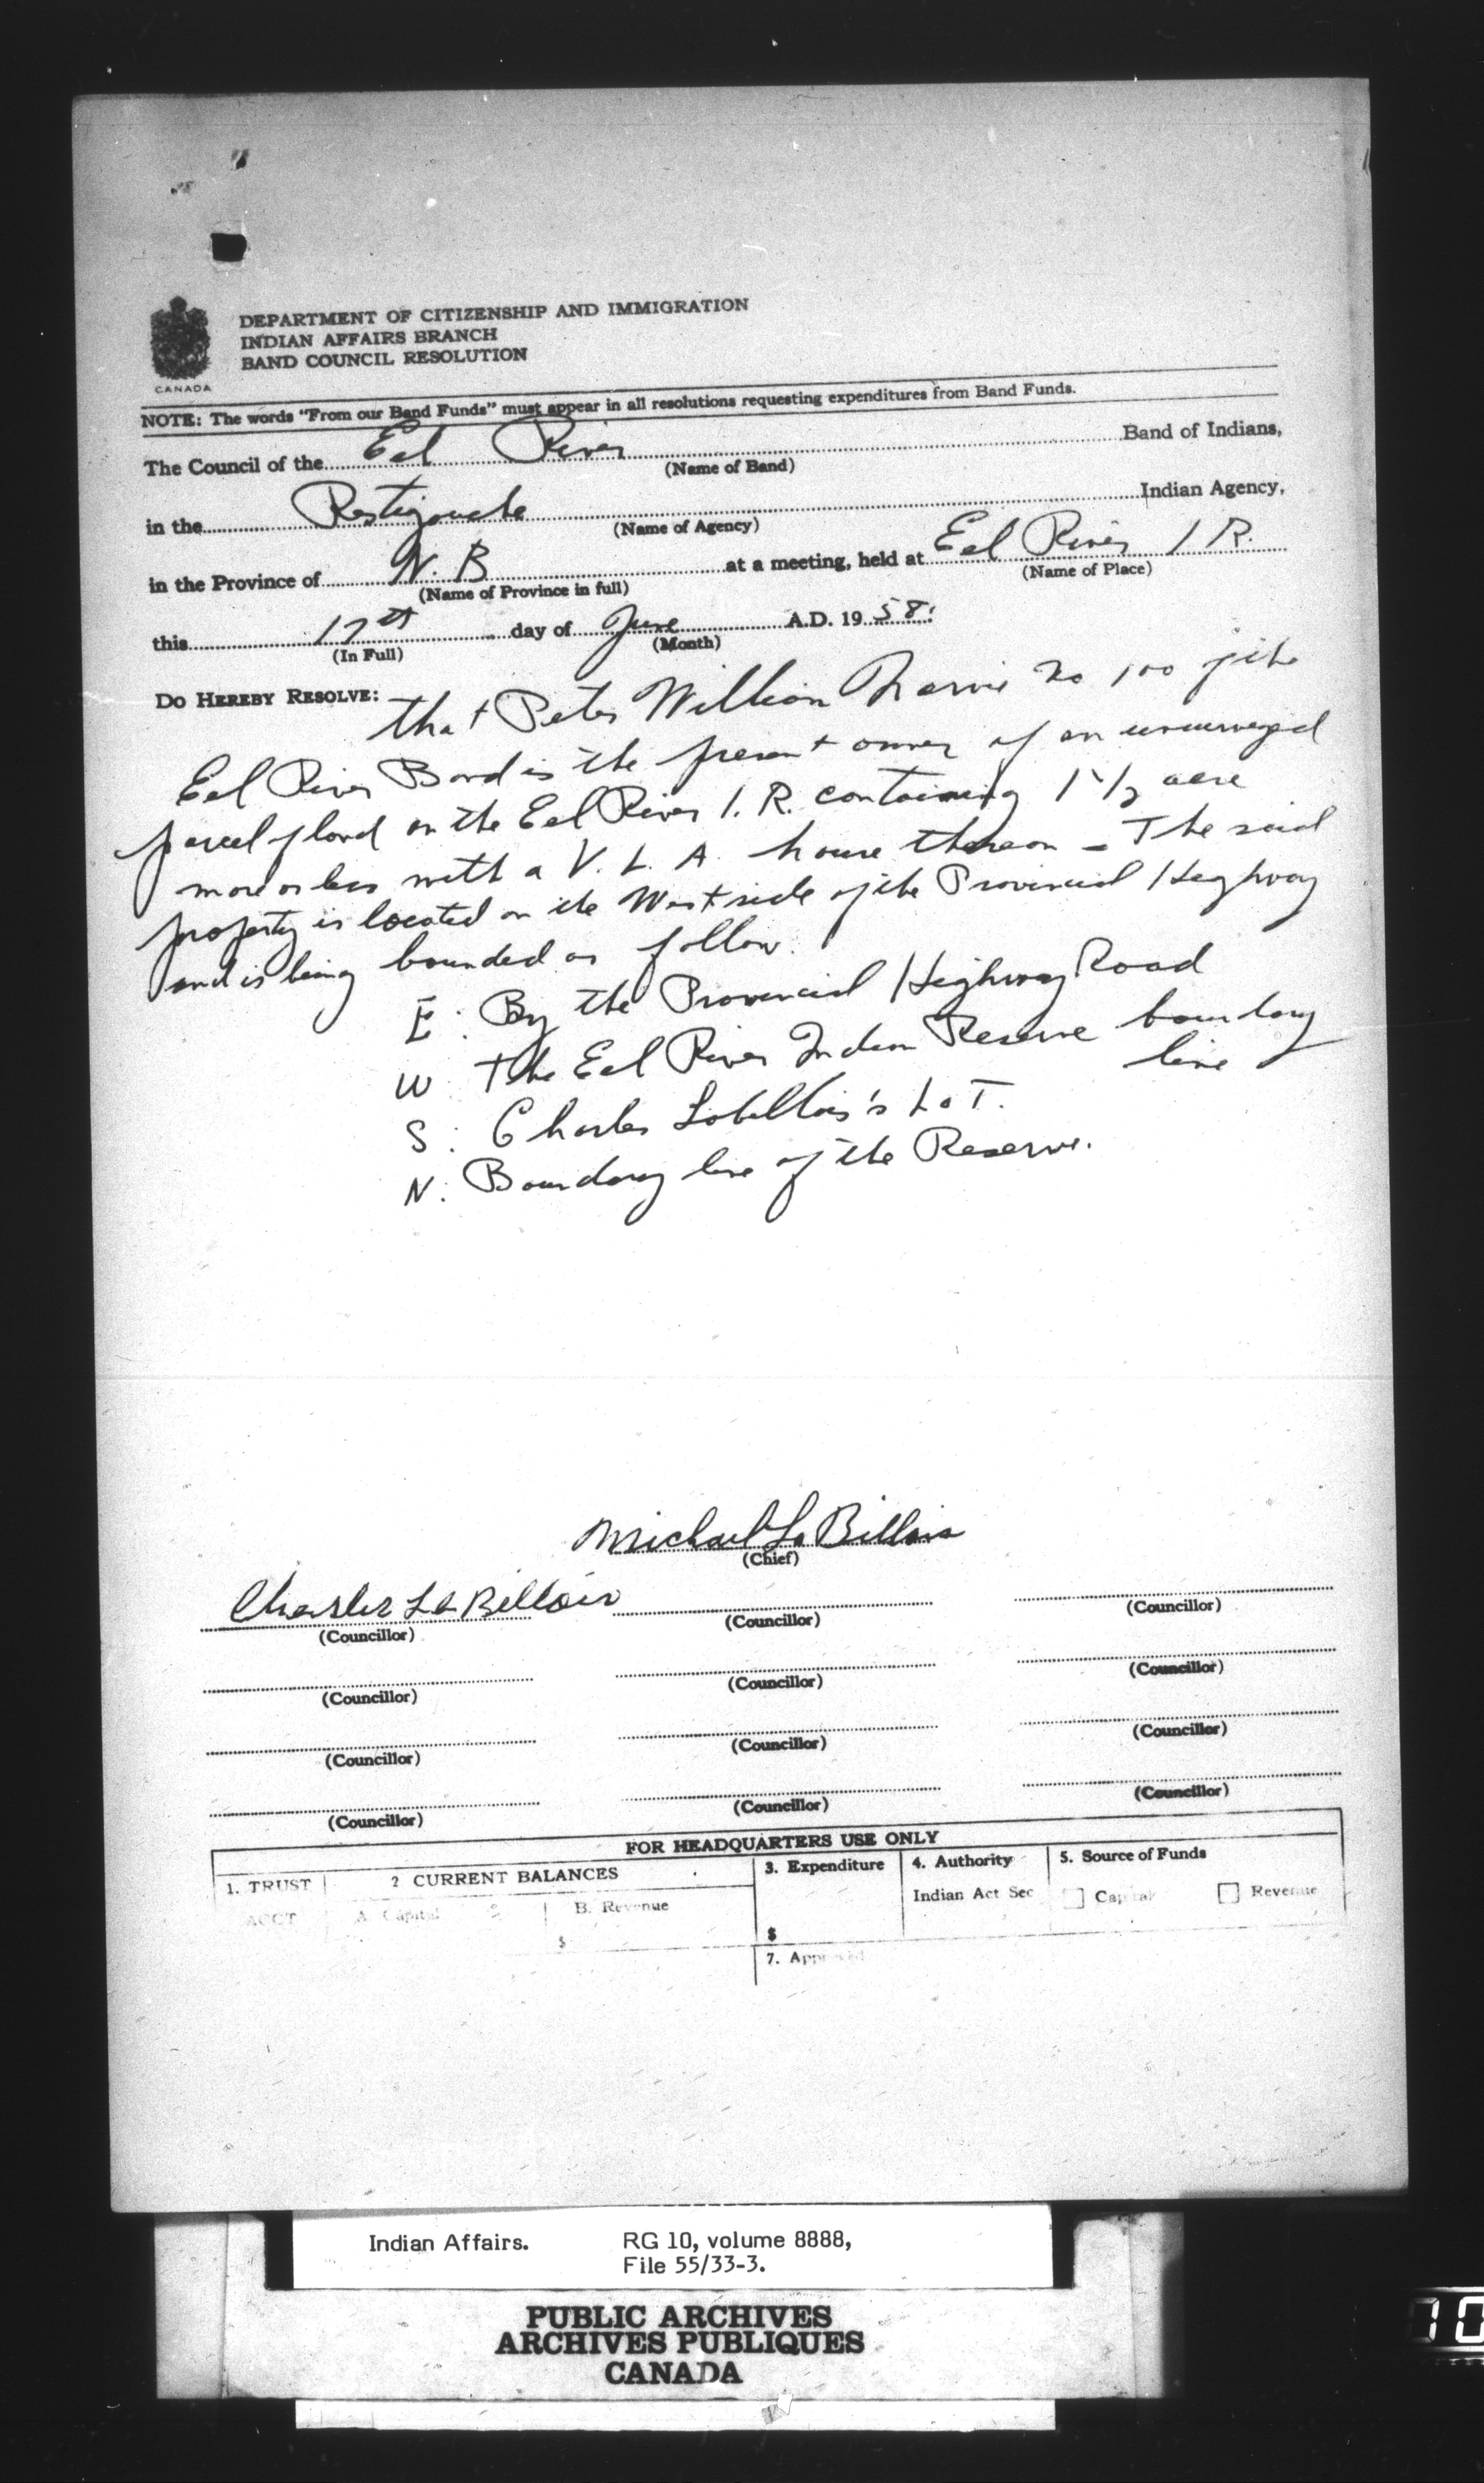 DEPARTMENT OF CITIZENSHIP AND IMMIGRATION
INDIAN AFFAIRS BRANCH
BAND COUNCIL RESOLUTION
CANADA
NOTE: The words "From our Band Funds" must appear in all resolutions requesting expenditures from Band Funds.
The Council of the Eel River Band of Indians,
(Name of Band)
in the Restigouche Indian Agency,
(Name of Agency)
in the Province of N. B at a meeting, held at Eel River I R.
(Name of Province in full) (Name of Place)
this 17th day of June A.D. 19 58.
(In Full) (Month)
DO HEREBY RESOLVE: that Peter William No 100 of the
Eel River Band is the present owner of an unsurveyed
parcel of land on the Eel River I. R. containing 1 1/2 acre
more or less with a V. L. A. house thereon - The said
property is located on the West side of the Provincial Highway
and is being bounded as follow.
E: By the Provincial Highway Road
W The Eel River Indian Reserve boundary
line
S: Charles Lobillois's LoT.
N: Boundary line of the Reserve.
Michael La Billois
(Chief)
Charles La Billois
(Councillor) (Councillor) (Councillor)
(Councillor) (Councillor) (Councillor)
(Councillor) (Councillor) (Councillor)
(Councillor) (Councillor) (Councillor)
FOR HEADQUARTERS USE ONLY
1. TRUST 2 CURRENT BALANCES 3. Expenditure 4. Authority 5. Source of Funds
ACCT A. Capital B. Revenue Indian Act Sec Capital Revenue
$ $
7. Approved
Indian Affairs. RG 10, volume 8888,
File 55/33-3.
PUBLIC ARCHIVES
ARCHIVES PUBLIQUES
CANADA
10